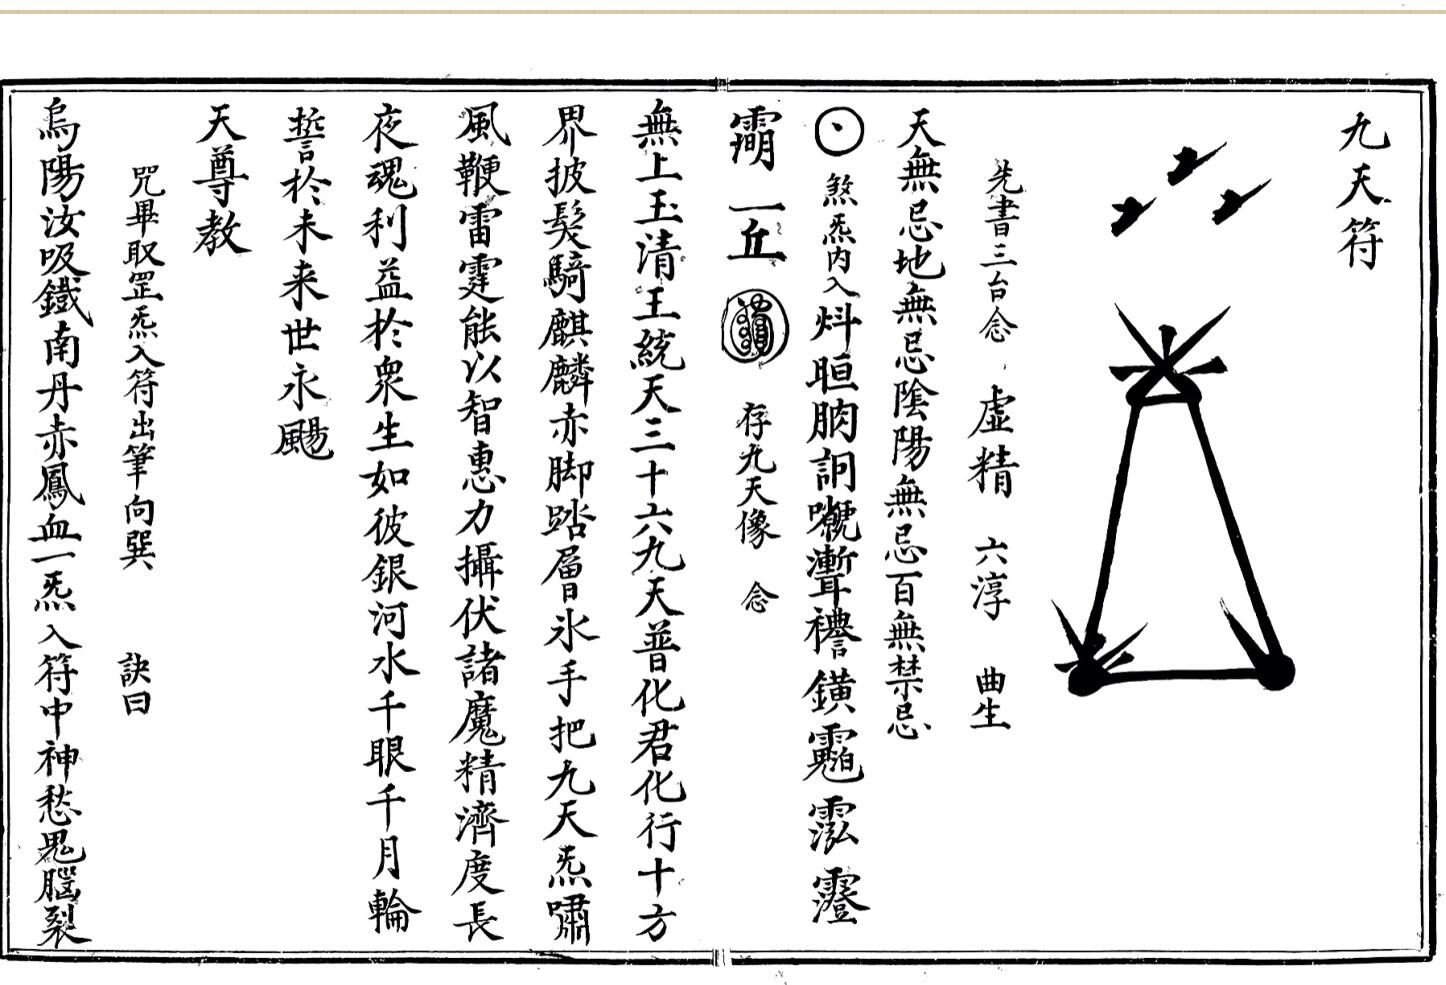 九天符
先書三台念 虛精 六淳 曲生
天無忌地無忌陰陽無忌百無禁忌
煞炁內入炓晅朒詷聻鐄
一丘 存九天像 念
無上玉清王統天三十六九天普化君化行十方
界披髮騎麒麟赤脚踏層氷手把九天炁嘯
風鞭雷霆能以智惠力攝伏諸魔精濟度長
夜魂利益於衆生如彼銀河水千眼千月輪
誓於未来世永颺
天尊教
咒畢取罡炁入符出筆向巽 訣曰
烏陽汝吸鐵南丹赤鳳血一炁入符中神愁鬼腦裂